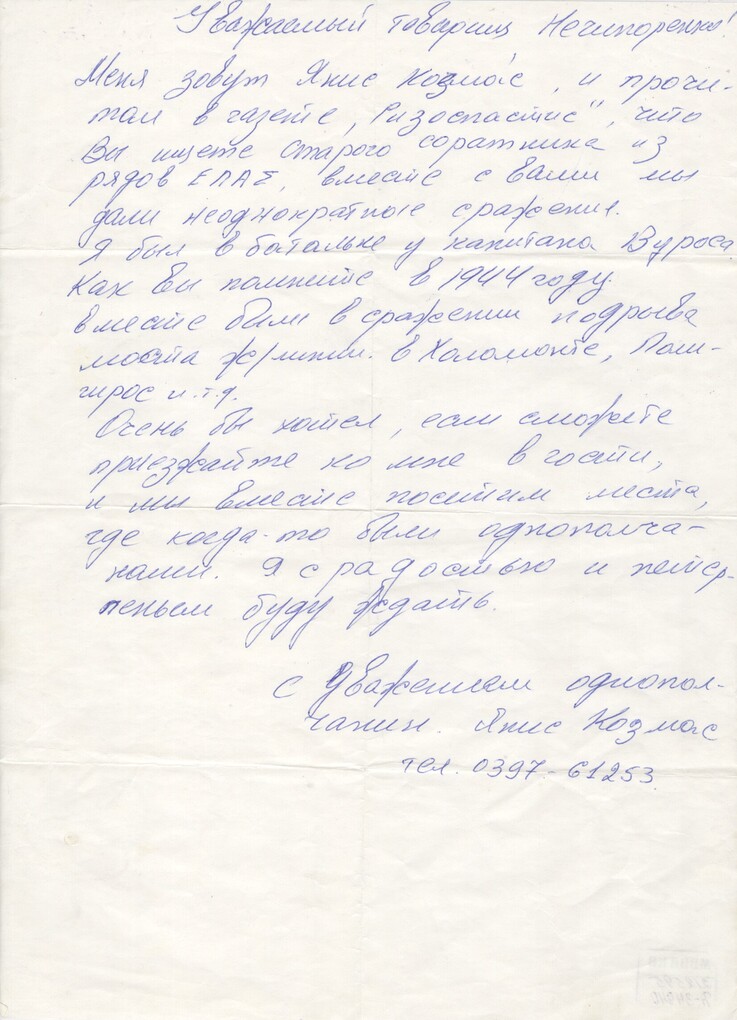 Уважаемый товарищ Нечипоренко!
Меня зовут Янис Козмас, и прочи-
тал в газете „Ризоспастис", что
Вы ищете старого соратника из
рядов ЕЛАΣ, вместе с Вами мы
дали неоднократные сражения.
Я был в батальне у капитана Вуроса
Как Вы помните в 1944 году.
вместе были в сражении подрыва
моста ж/линии. в Холомонте, Поли-
гирос и.т.д.
Очень бы хотел, если сможете
приезжайте ко мне в гости,
и мы вместе посетим места,
где когда-то были однополча-
нами. Я с радостью и нетер-
пеньем буду ждать.
С Уважением однопол-
чанин. Янис Козмас
тел. 0397-61253.